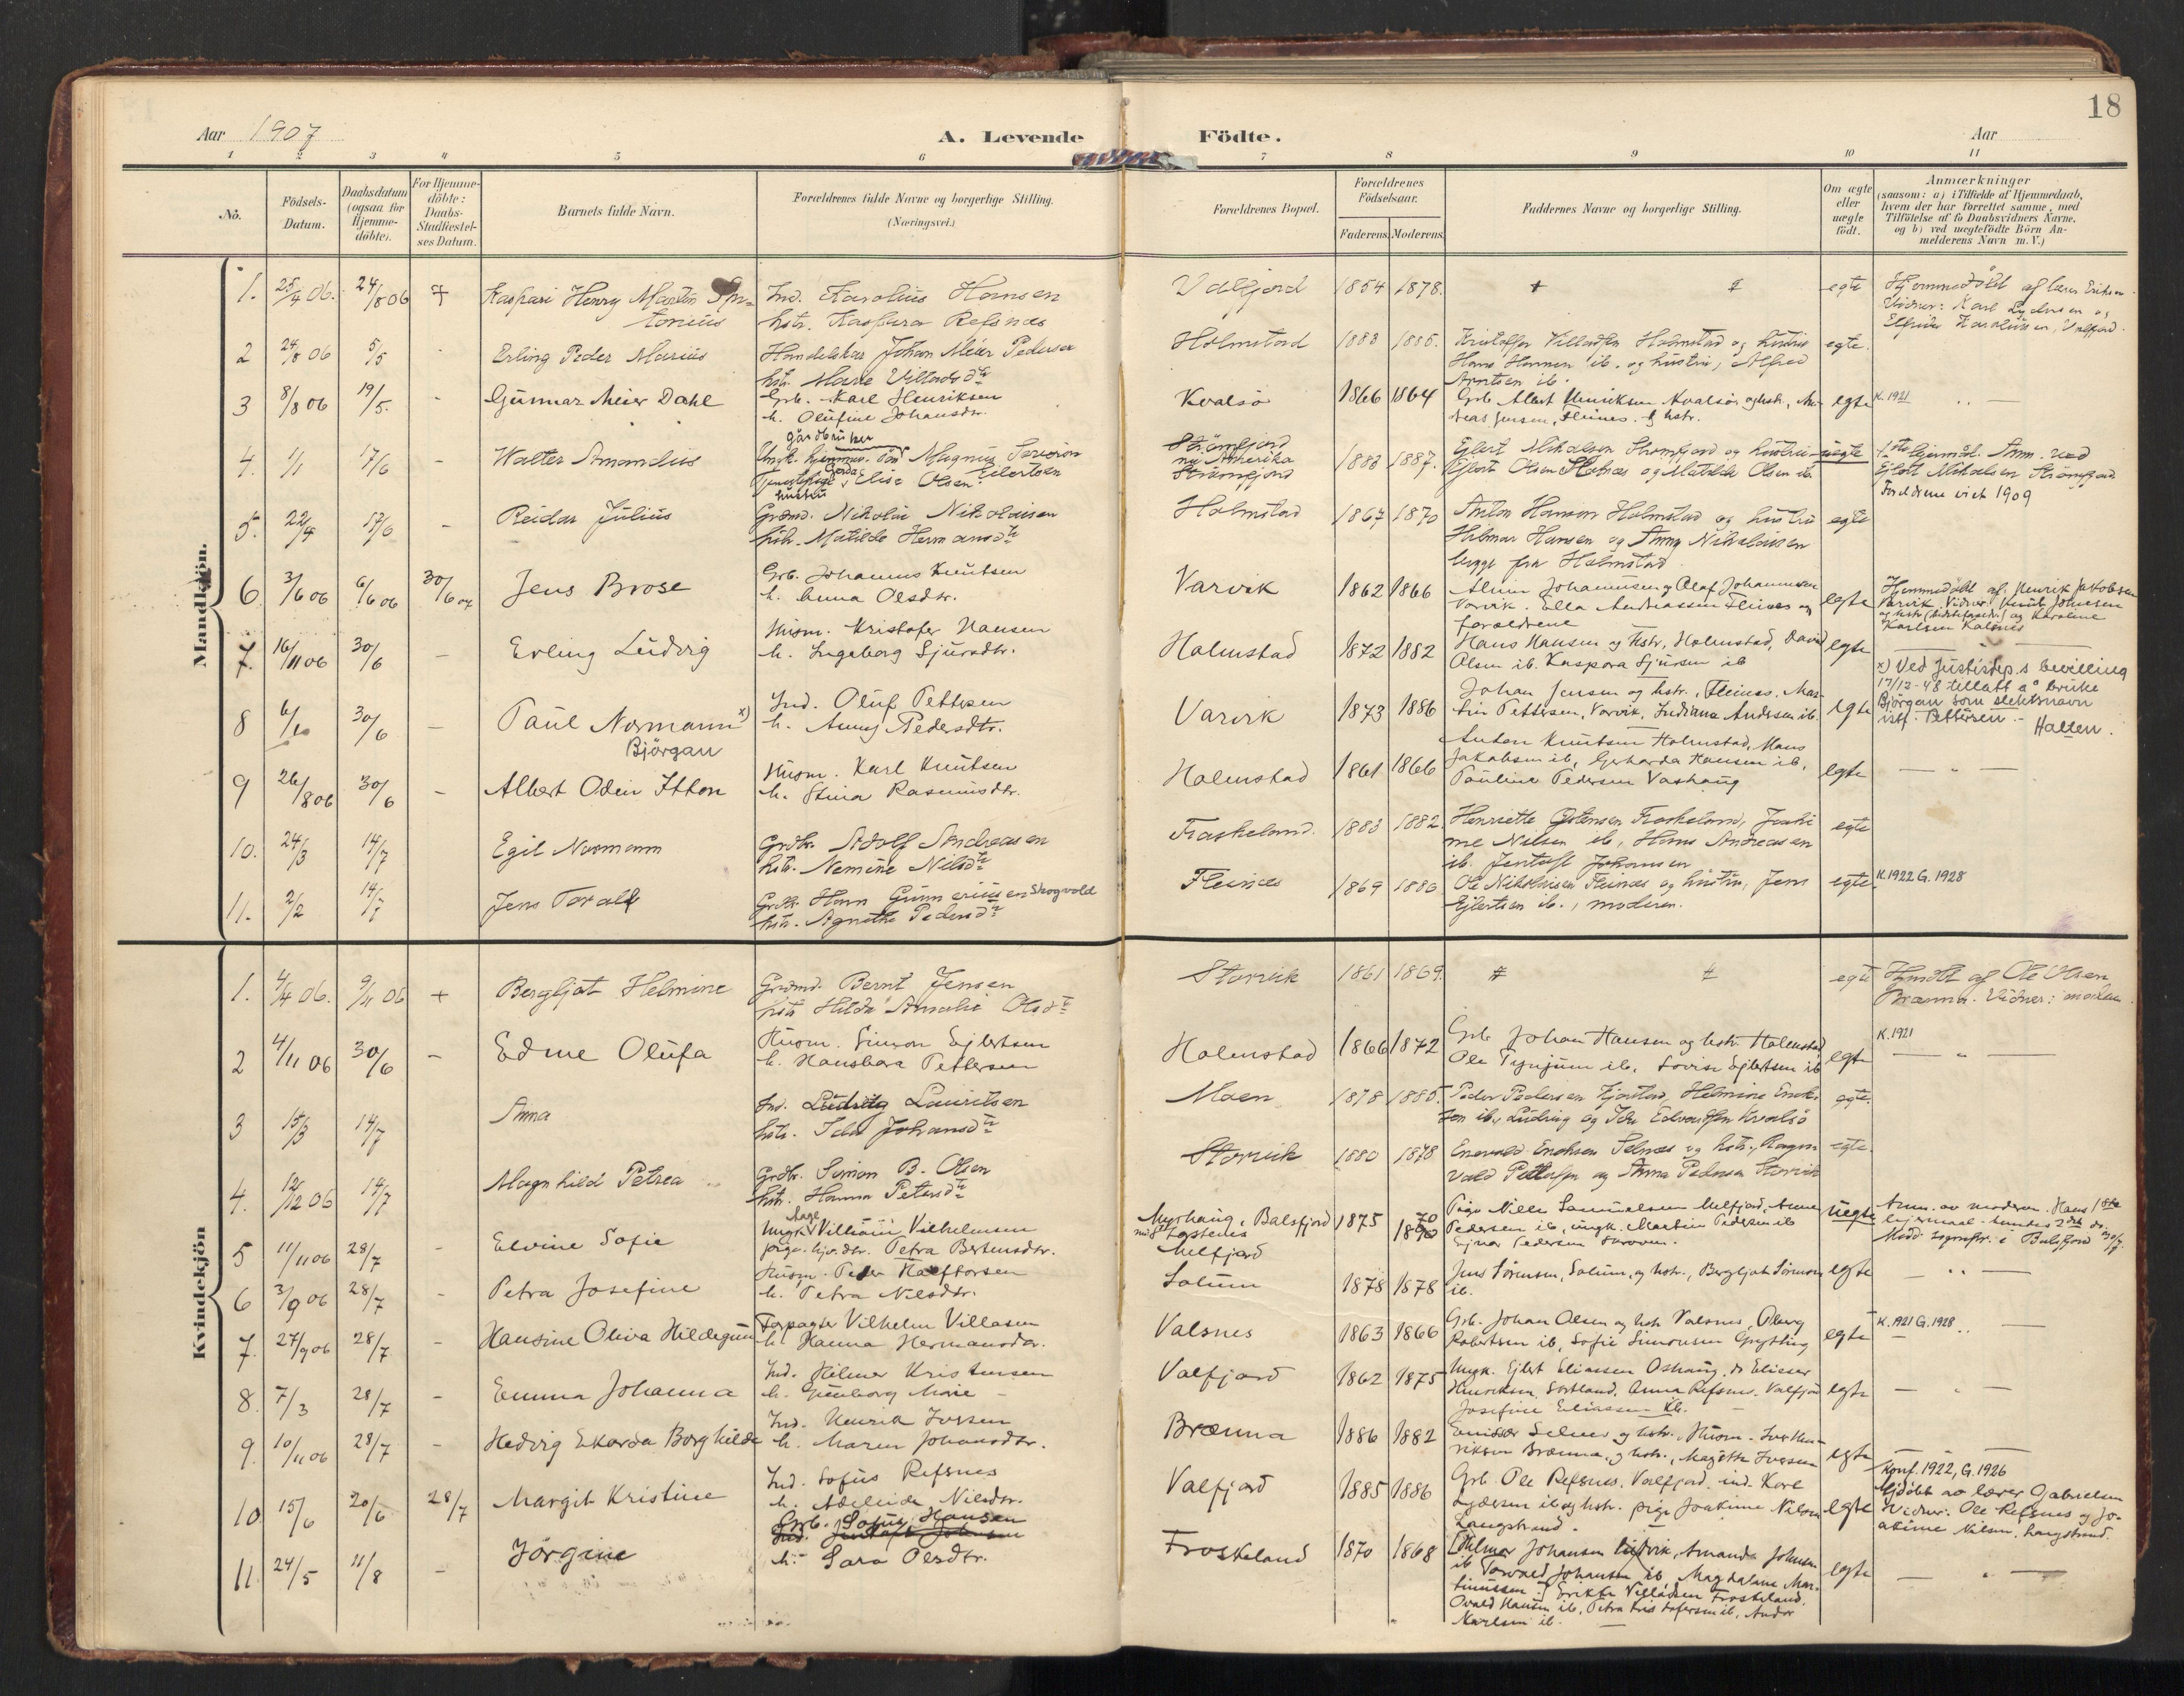 18
Aar 1907
A. Levende Födte.
Aar
1 2 3 4 5 6 7 8 9 10 11
No.
Födsels-Datum.
Daabsdatum (ogsaa for Hjemmedöbte).
For Hjemmedöbte: Daabs-Stadfæstelses Datum.
Barnets fulde Navn.
Forældrenes fulde Navne og borgerlige Stilling.
(Næringsvei.)
Forældrenes Bopæl.
Forældrenes Födselsaar.
Faderens. Moderens.
Faddernes Navne og borgerlige Stilling.
Om ægte eller uægte födt.
Anmærkninger
(saasom: a) i Tilfælde af Hjemmedaab,
hvem der har forrettet samme, med
Tilföielse af to Daabsvidners Navne,
og b) ved uægtefödte Börn An-
melderens Navn m. V.)
Mandkjön.
1. 25/4 06. 24/8 06 + Kaspari Henry Martin
Ind. Karolius Hansen
hstr. Kaspara Refsnes
Valfjord 1854 1878. egte
Hjemmedøbt af lærer Eriksen.
Vidner: Karl Lydersen og
Valfjord.
2 24/8 06 5/5 - Erling Peder Marius
Johan Meier Pedersen
hstr. Marie Villadsdtr
Holmstad 1883 1885.
Kristoffer Villadsen Holmstad og hustru
Hans Hansen ib. og hustru, Alfred
Arntsen ib.
egte.
3 8/8 06 19/5. - Gunnar Meier Dahl
Grb. Karl Henriksen
h. Olufine Johansdtr.
Kvalsö 1866 1864
Grb. Albert Henriksen Kvalsör og hstr., An-
dreas Jensen, Fleines. & hstr.
egte K. 1921 - " -
4. 1/1 17/6 - Walter Amandus
gårdbruker
Ungk. Magnus
Gerda Elise Olsen Eilertsen
hustru
Strömfjord
nu Amerika
Strömfjord
1883 1887.
Ejlert Mikalsen Strømfjord og hustru
Ejlert Olsen og Matilde Olsen ib.
uegte
Anm. ved
Ejlert Mikalsen Strömfjord.
Forældrene viet 1909
5. 22/4 17/6 - Reidar Julius
Grdmd. Nikolai Nikolaisen
hstr. Matilde Hermansdtr
Holmstad 1867 1870
Anton Hansen Holmstad og hustru
Hilmar Hansen og Anna Nikolaisen
begge fra Holmstad.
egte
6 3/6 06 6/6 06 30/6 07 Jens Brose
Grb. Johannes Knutsen
h. Anna Olsdtr.
Varvik 1862 1866
Johannesen og Olaf Johannesen
Varvik. Ella Andreassen Fleines og
forældrene
egte
Hjemmedøbt af Henrik Jakobsen
Varvik. Vidner: Knut Johnsen
og Karoline
Karlsen Kalsnes
7. 16/11 06 30/6 - Erling Ludvig
Husm. Kristofer Hansen
h. Ingeborg Sjursdtr.
Holmstad 1872 1882
Hans Hansen og Hstr, Holmstad, David
Olsen ib. Kaspara Sjursen ib
egte
8 6/1 30/6 - Paul Normann x)
Björgan
Ind. Oluf Pettersen
h. Anna Pedersdtr.
Varvik 1873 1886
Johan Jensen og hstr., Fleines. Mar-
tin Pettersen, Varvik, Indiana Andersen ib.
egte
x) Ved Justisdep.s bevilling
17/12-48 tillatt å bruke
Björgan som slektsnavn
istf. Pettersen.-
Halten.
9 26/8 06 30/6 - Albert Odin Itton
Husm. Karl Knutsen
h. Stina Rasmusdtr.
Holmstad 1861 1866
Anton Knutsen Holmstad, Hans
Jakobsen ib, Gerharda Hansen ib,
Pauline Pedersen Vashaug
egte - " -
10. 24/3 14/7 Egil Normann
Grdbr. Adolf Andreasen
hstr. Nemine Nilsdtr
Froskeland. 1883 1882
Henriette Froskeland, Joaki-
me Nilsen ib, Hans Andreasen
ib. Johansen
egte
11. 2/2 14/7 Jens Toralf
Grdbr. Hans Gunneriusen Skogvold
hstr. Agnethe Pedersdtr
Fleines 1869 1880
Ole Nikolaisen Fleines og hustru, Jens
Ejlertsen ib., moderen.
egte K. 1922 G. 1928
Kvindekjön
1. 4/4 06. 9/11 06 + Bergljot Helmine
Grdmd. Bernt Jensen
hstr Hilda Amalie Olsdtr
Storvik 1861 1869. egte
Hjmdbt af Ole Olsen
Brænna. Vidner:
2 4/11 06 30/6 - Edme Olufa
Husm. Simon Ejlertsen
h. Hansbara Pettersen
Holmstad 1866 1872
Grb Johan Hansen og hstr. Holmstad
Ole ib, Lovise Ejlertsen ib
egte K. 1921 - " -
3 15/3 14/7 Anna
Ind. Ludvig Lauritsen
hstr. Ida Johansdtr
Moen 1878 1885.
Peder Pedersen Helmine Erik-
sen ib, Ludvig og Ida Edvardsen Kvalsö
egte.
4. 12/12 06 14/7 Magnhild Petrea
Grdbr. Simon B. Olsen
hstr. Hanna Petersdtr
Storvik 1880 1878
Enevold Eriksen Selnes og hstr, Ragn-
vald Pettersen og Anna Pedersen Storvik
egte.
5 11/11 06 28/7 - Elvine Sofie
Ungk. Aage Villiam Vilhelmsen
pige. Petra Bertinsdtr.
Myrhaug, Balsfjord
Melfjord
1875 1870
Pige Nille Samuelsen Melfjord, Anne
Pedersen ib, ungk. Martin Pedersen ib
Ejner Pedersen
uegte
Anm. av moderen. Hans 1ste
leiermaal - hendes 2det do.
Medd. sogneprst. i Balsfjord 30/7.
6 3/9 06 28/7 - Petra Josefine
Husm. Peder
h. Petra Nilsdtr.
Solum 1878 1878
Jens Sörensen, Solum, og hstr., Bergljot Sörensen
ib.
egte - " -
7. 27/9 06 28/7 - Hansine Oliva Hildegun
Forpagter Vilhelm Villasen
h. Hanna Hermansdtr.
Valsnes 1863 1866
Grb. Johan Olsen og hstr Valsnes, Oberg
Robertsen ib, Sofie Simonsen Grytting
egte K. 1921 G. 1928 " -
8. 7/3 28/7 - Emma Johanna
Ind. Hilmer Kristensen
h. Gunborg Marie -
Valfjord 1862 1875
Ungk. Ejlert Eliassen Oshaug, do Elieser
Henriksen, Sortland. Anna Refsnes. Valfjord
Josefine Eliassen ib.
egte - " -
9. 10/11 06 28/7 - Hedvig Ekorda Borghilde
Ind. Henrik Iversen
h. Maren Johansdtr.
Brænna 1886 1882
Selnes og hstr, Husm. Iver Hen-
riksen Brænna, og hstr., Magitta Iversen
egte - " -
10 15/6 20/6 28/7 Margit Kristine
Ind. Sofus Refsnes
h. Adeleide Nilsdtr.
Valfjord 1885 1886
Grb. Ole Refsnes. Valfjord. ind. Karl
Lydersen ib og hstr. pige Joakime Nilsen
Langstrand.
egte
Konf. 1922, G. 1926
Hjdøbt av lærer Gabrielsen
Vidner: Ole Refsnes og Jo-
akime Nilsen, Langstrand.
11. 24/5 11/8 - Jörgine
Grb. Sofus Hansen
h. Sara Olsdtr.
Froskeland 1870 1868
[Hilmer Johansen Amanda Johnsen
ib Torvald Johansen ib, Magdaline Mar-
tinussen.] Erikka Villadsen Froskeland,
Ovald Hansen ib, Petra Kristofersen ib, Andor
Karlsen ib.
egte - " -